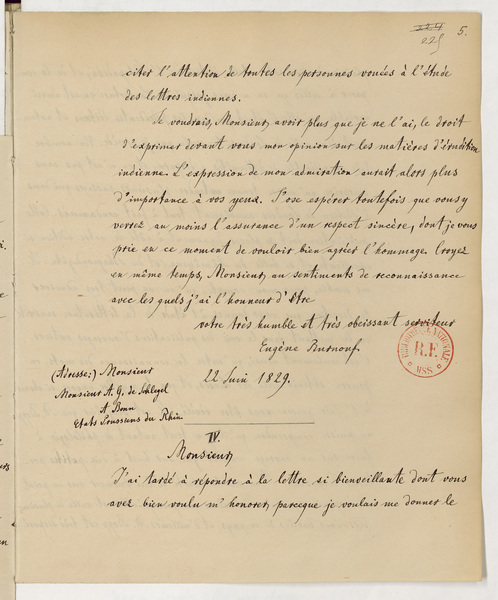 5.
225
citer l'attention de toutes les personnes vouées à l'étude
des lettres indiennes.
Je voudrais, Monsieur, avoir plus que je ne l'ai, le droit
d'exprimer devant vous mon opinion sur les matières d'érudition
indienne. L'expression de mon admiration aurait alors plus
d'importance à vos yeux. J'ose espérer toutefois que vous y
verrez au moins l'assurance d'un respect sincère, dont je vous
prie en ce moment de vouloir bien agréer l'hommage. Croyez
en même temps, Monsieur, au sentiments de reconnaissance
avec les quels j'ai l'honneur d'être
votre très humble et très obeissant serviteur
Eugène Burnouf.
BIBLIOTHÈQUE NATIONALE
R.F.
MSS
(Adresse:) Monsieur
22 Juin 1829.
Monsieur A. G. de Schlegel
A Bonn
Etats Prussiens du Rhin
IV.
Monsieur,
J'ai tardé à répondre à la lettre si bienveillante dont vous
avez bien voulu m'honorer, parceque je voulais me donner le